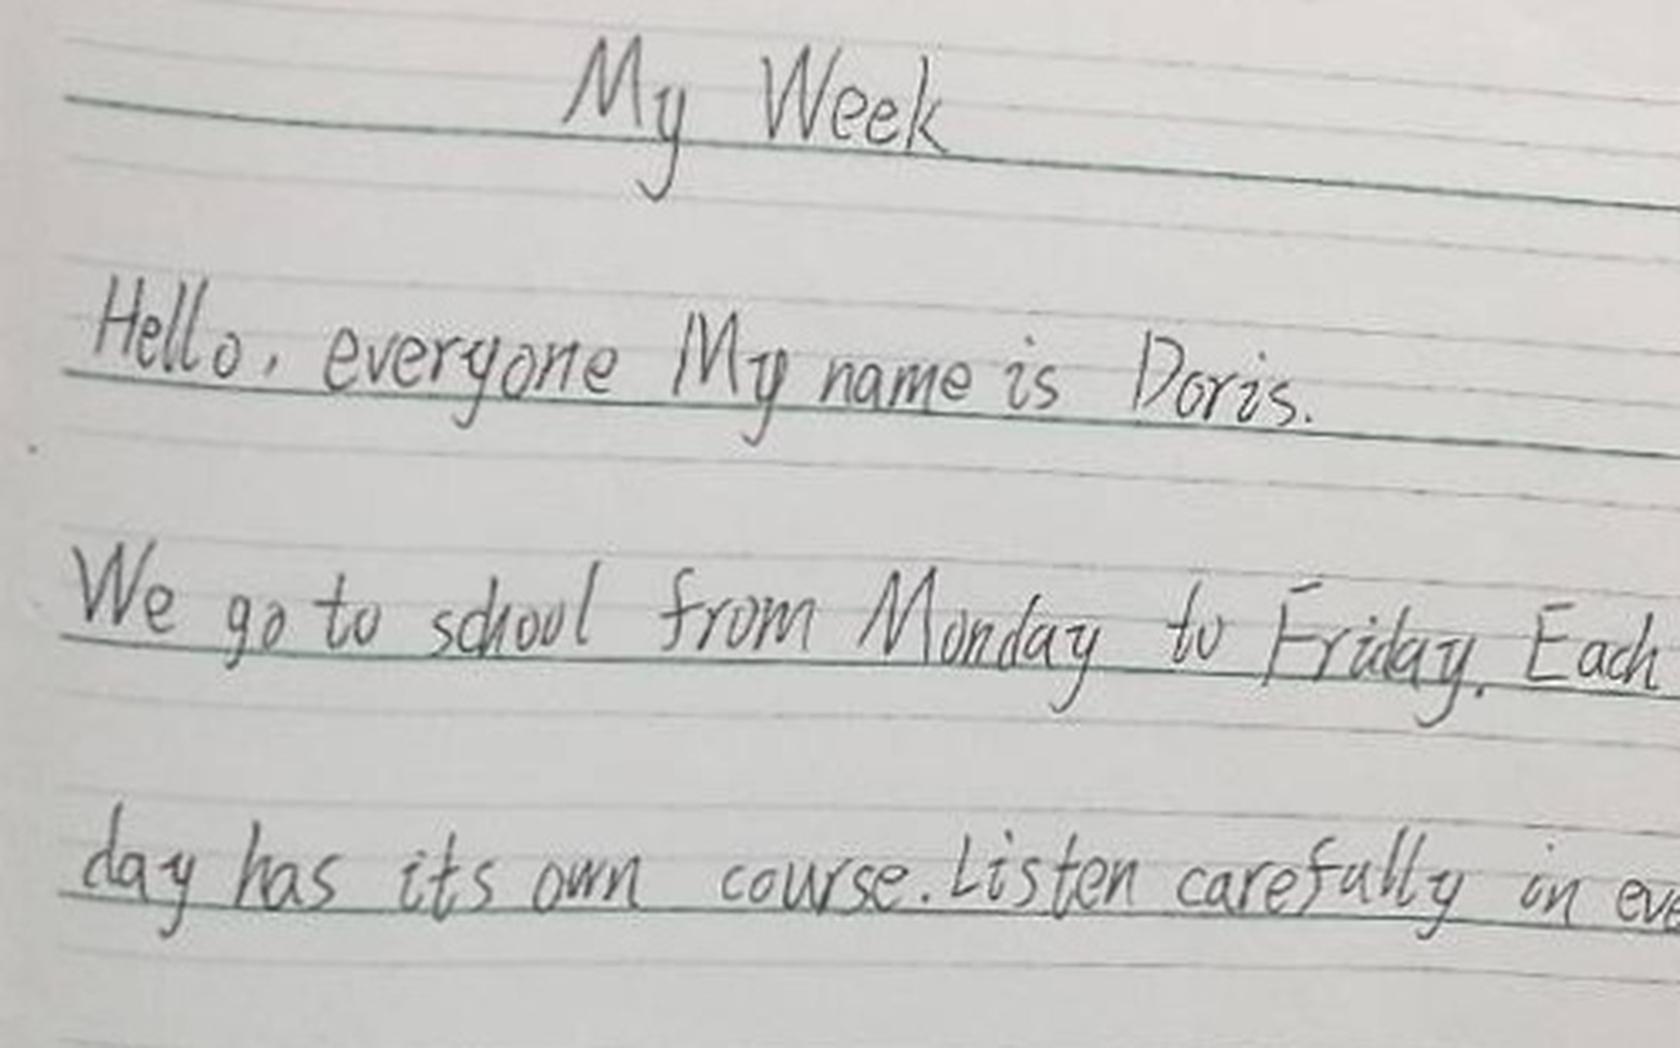 My Week
Hello, everyone My name is Doris.
We go to school from Monday to Friday. Each
day has its own course. Listen carefully in